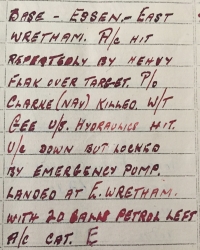 BASE - ESSEN. - EAST
WRETHAM. A/C HIT
REPEATEDLY BY HEAVY
FLAK OVER TARGET. P/O
CLARKE (NAV) KILLED. W/T
GEE U/S. HYDRAULICS HIT.
U/C DOWN BUT LOCKED
BY EMERGENCY PUMP.
LANDED AT E. WRETHAM.
WITH 20 GALLS PETROL LEFT
A/C CAT. E